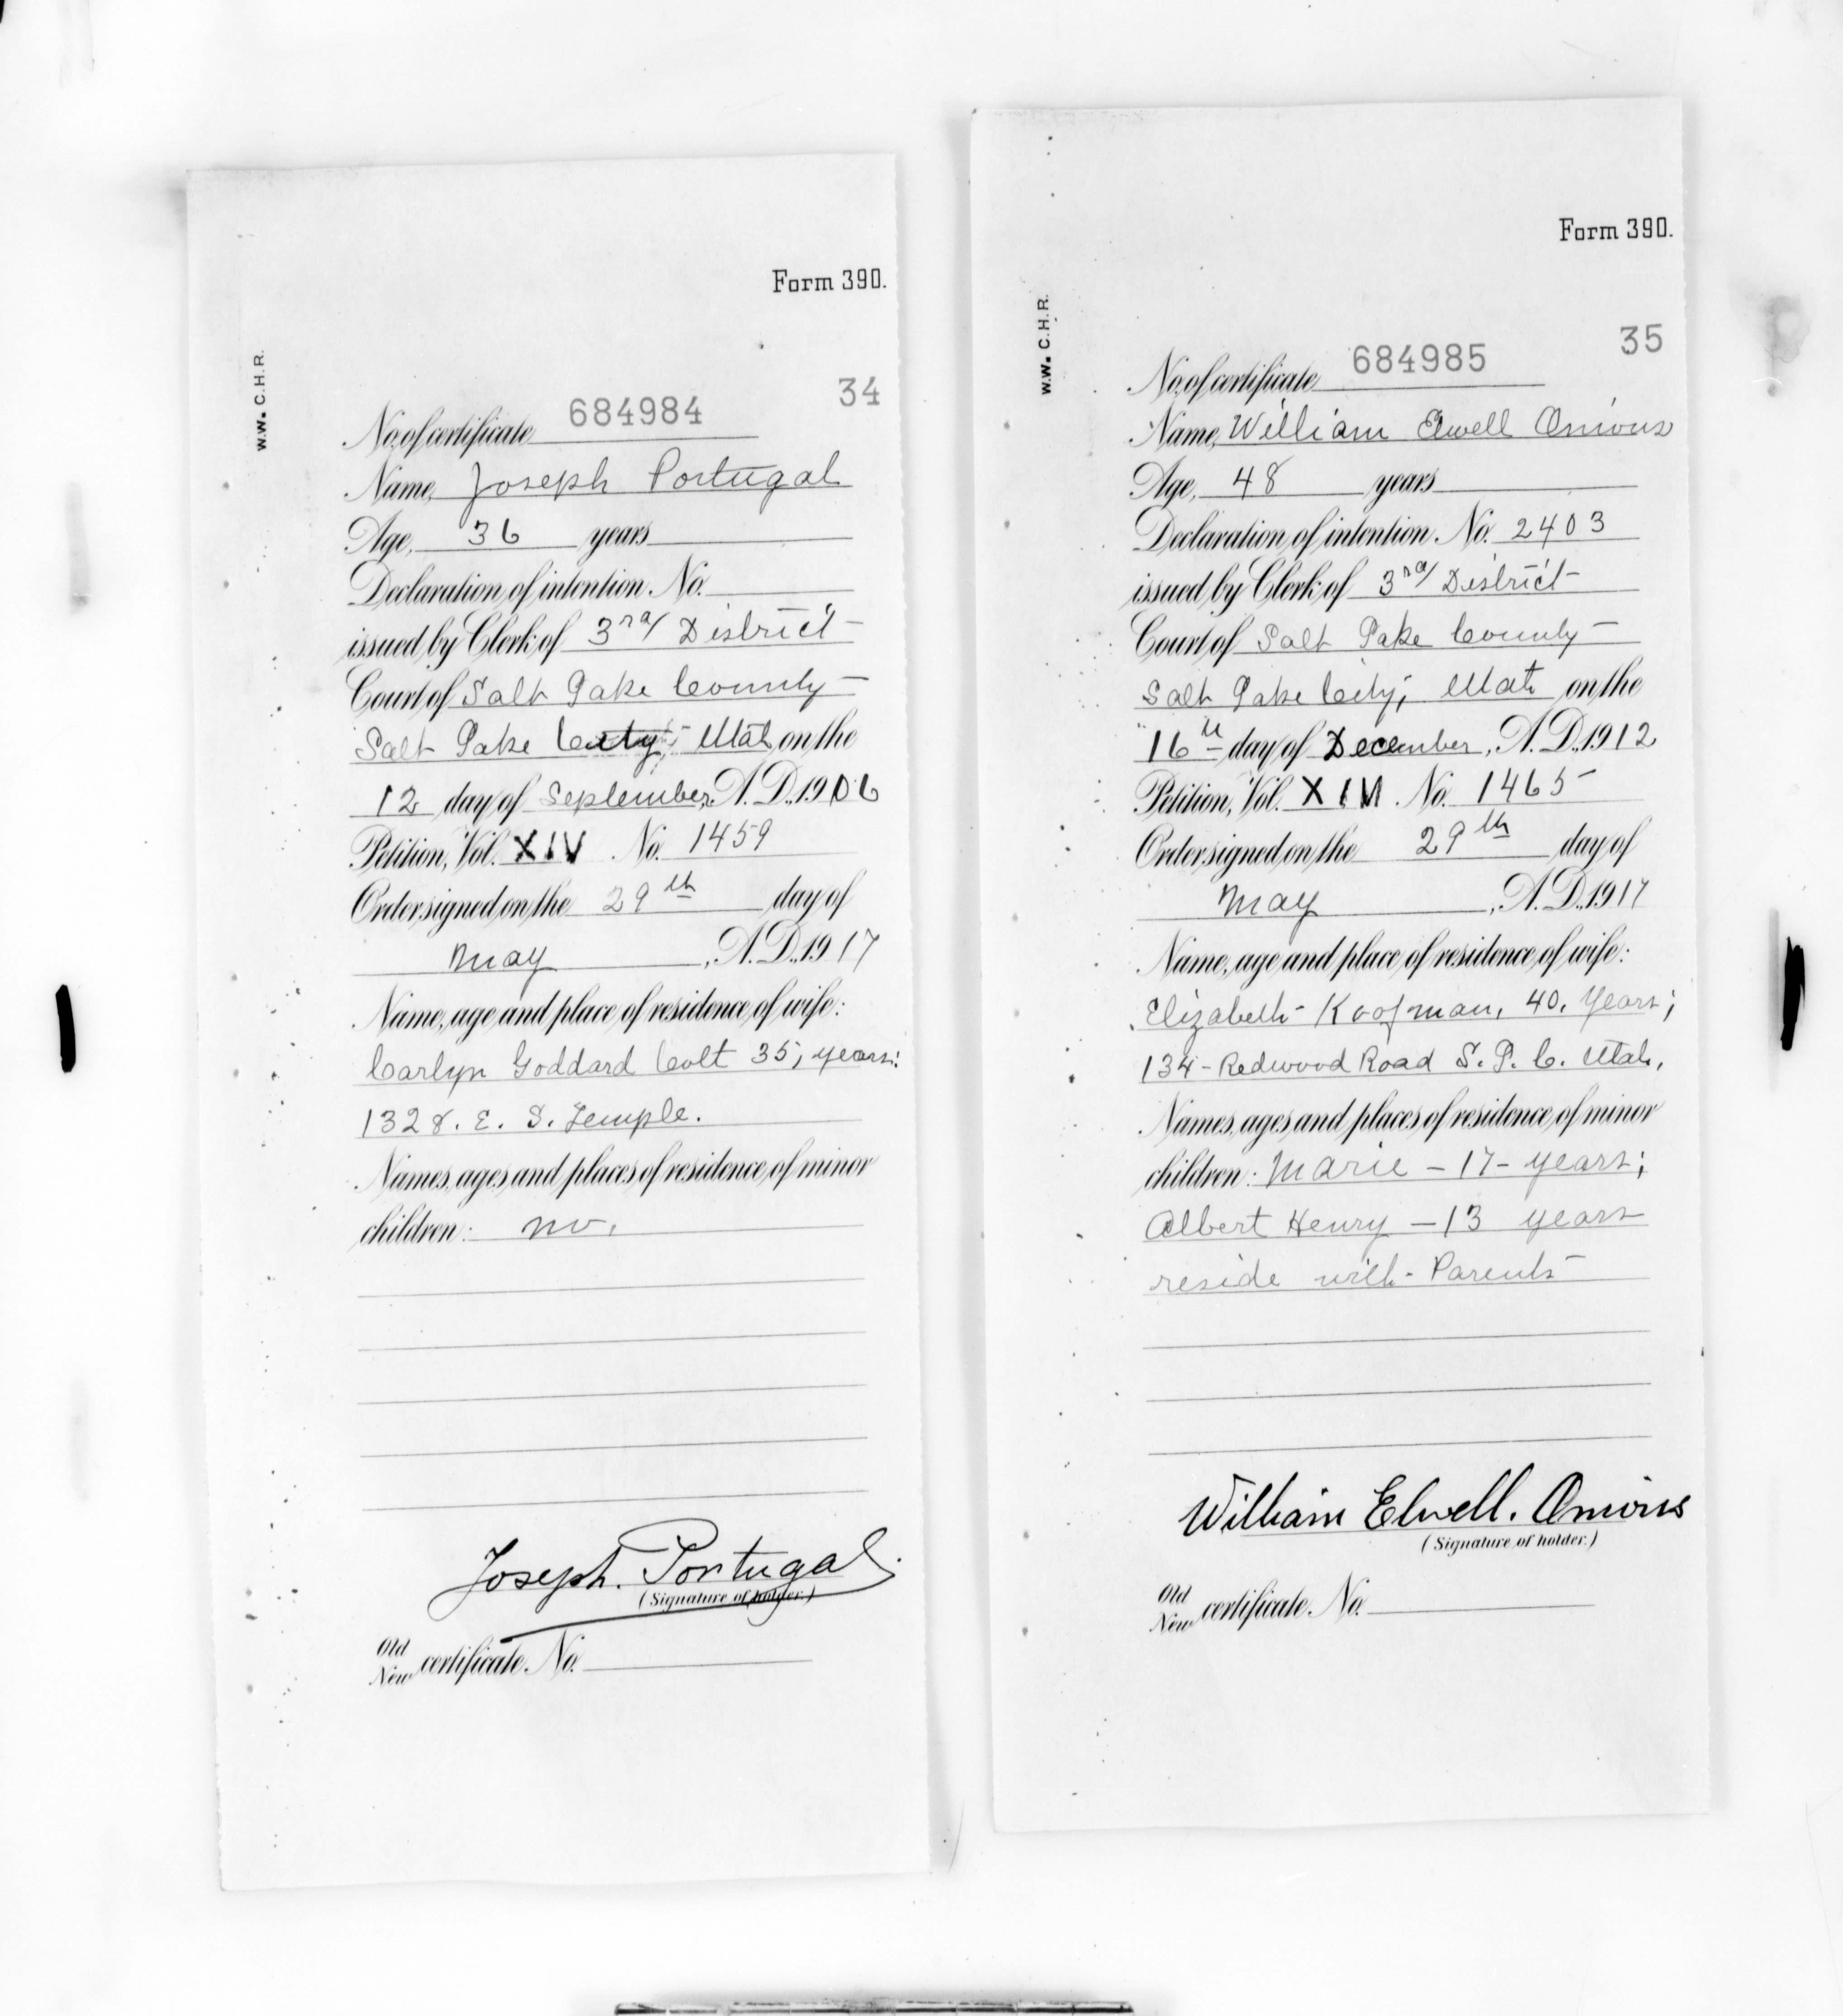 Form 390.
W.W. C.H.R.
34
No. of certificate 684984
Name, Joseph Portugal
Age, 36 years
Declaration of intention No.
issued by Clerk of 3rd District
Court of Salt Lake County
Salt Lake City, Utah on the
12 day of September, A. D., 1906
Petition, Vol. XIV No. 1459
Order signed on the 29th day of
May, A. D., 1917
Name, age and place of residence of wife:
Carlyn Goddard Colt 35, years:
1328. E. S. Temple.
Names, ages and places of residence of minor
children: no.
Joseph. Portugal.
(Signature of holder.)
Old
New certificate No.
Form 390.
W.W. C.H.R.
35
No. of certificate 684985
Name, William Elwell Onions
Age, 48 years
Declaration of intention No. 2403
issued by Clerk of 3rd District
Court of Salt Lake County
Salt Lake City, Utah on the
16th day of December, A. D., 1912
Petition, Vol. No. 1465
Order signed on the 29th day of
May, A. D., 1917
Name, age and place of residence of wife:
Elizabeth Koofman, 40, Years;
134 - Redwood Road S. L. C. Utah,
Names, ages and places of residence of minor
children: Marie - 17 - years;
Albert Henry - 13 years
reside with - Parents
William Elwell. Onions
(Signature of holder.)
Old
New certificate No.